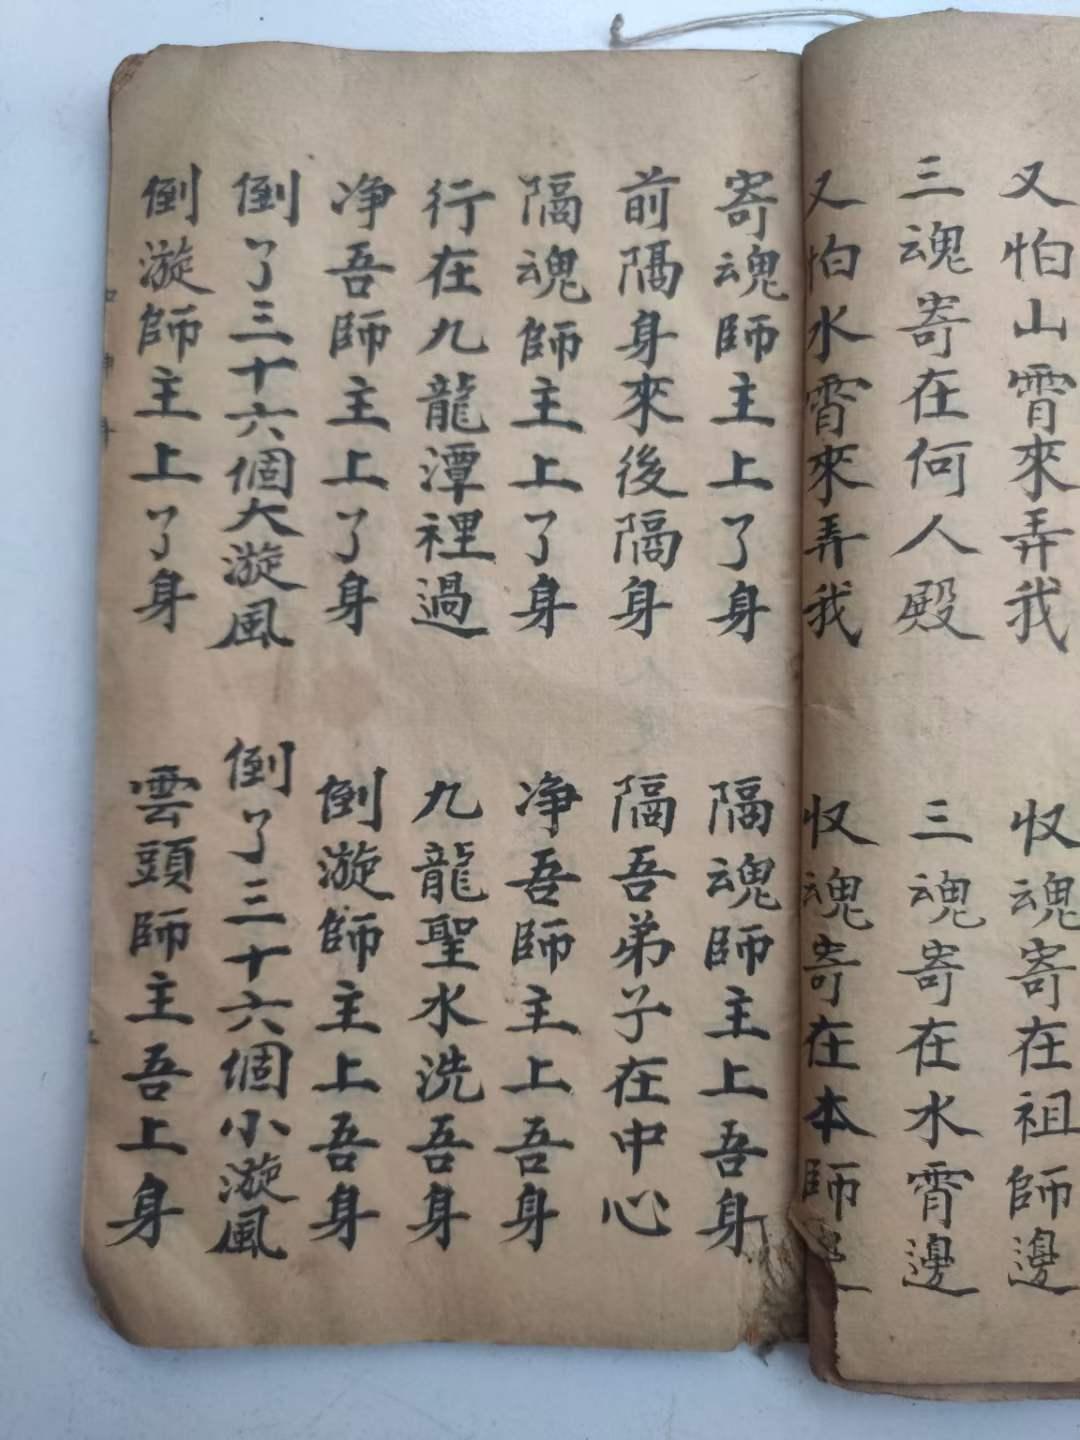 又怕山霄來弄我
收魂寄在祖師邊
三魂寄在何人殿
三魂寄在水霄邊
又怕水霄來弄我
收魂寄在本師邊
寄魂師主上了身
隔魂師主上吾身
前隔身來後隔身
隔吾弟子在中心
隔魂師主上了身
净吾師主上吾身
行在九龍潭裡過
九龍聖水洗吾身
净吾師主上了身
倒漩師主上吾身
倒了三十六個大漩風
倒了三十六個小漩風
倒漩師主上了身
雲頭師主吾上身